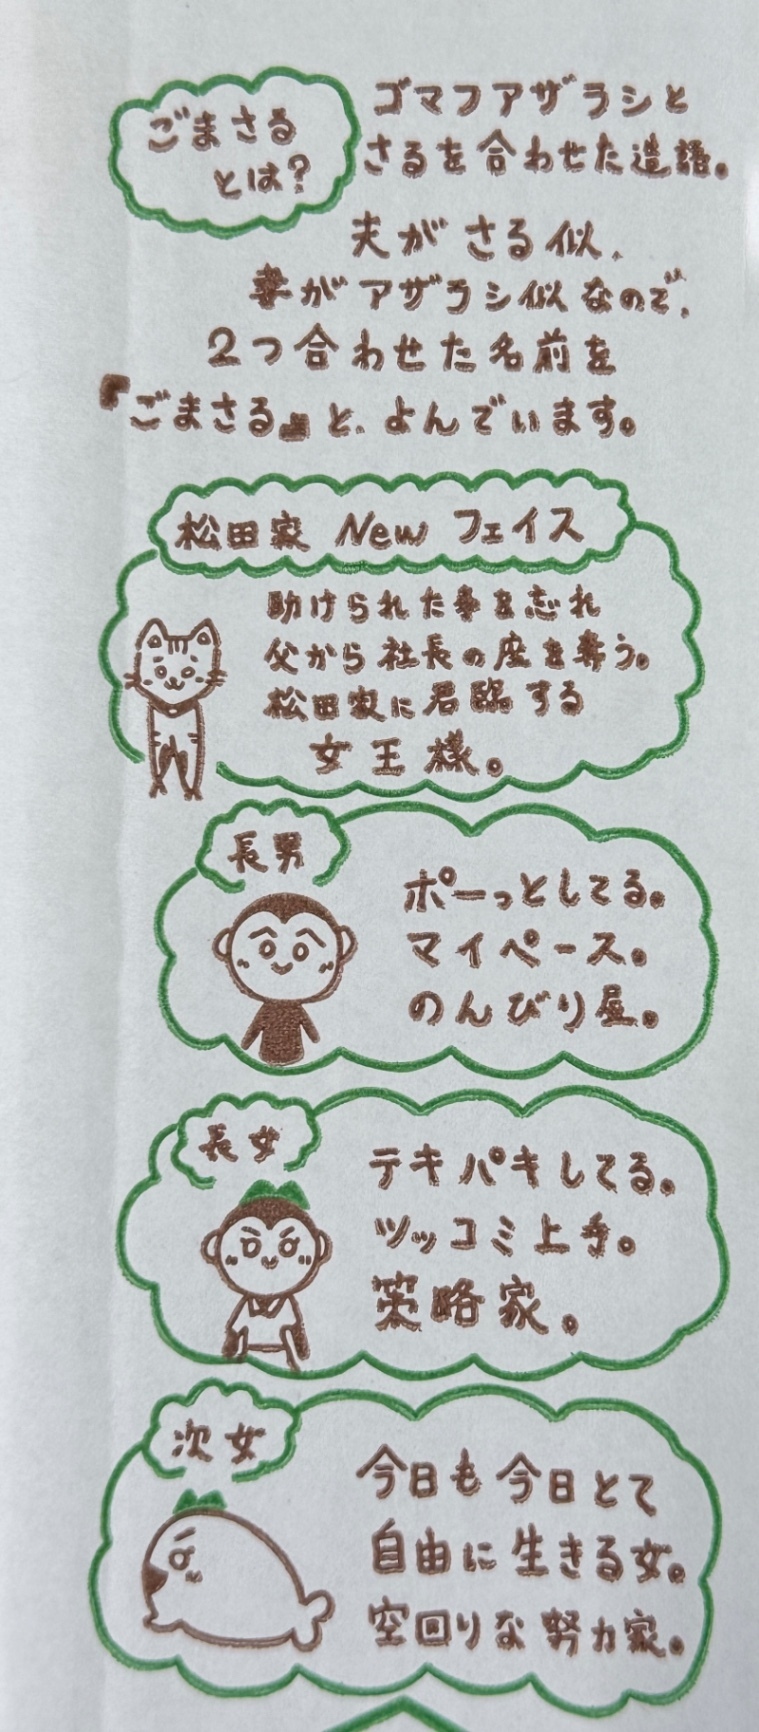 ごまさる
とは?
ゴマフアザラシと
さるを合わせた造語。
夫がさる似、
妻がアザラシ似なので、
2つ合わせた名前を
『ごまさる』と、よんでいます。
松田家 New フェイス
助けられた事を忘れ
父から社長の座を奪う。
松田家に君臨する
女王様。
長男
ボーっとしてる。
マイペース。
のんびり屋。
長女
テキパキしてる。
ツッコミ上手。
策略家。
次女
今日も今日とて
自由に生きる女。
空回りな努力家。